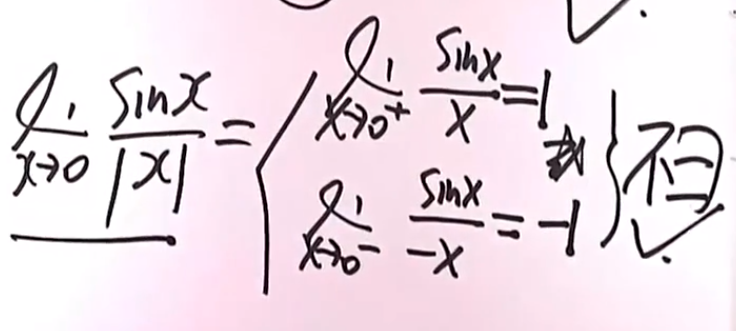 lim x→0 sinx/|x| = { lim x→0⁺ sinx/x = 1
lim x→0⁻ sinx/-x = -1 }